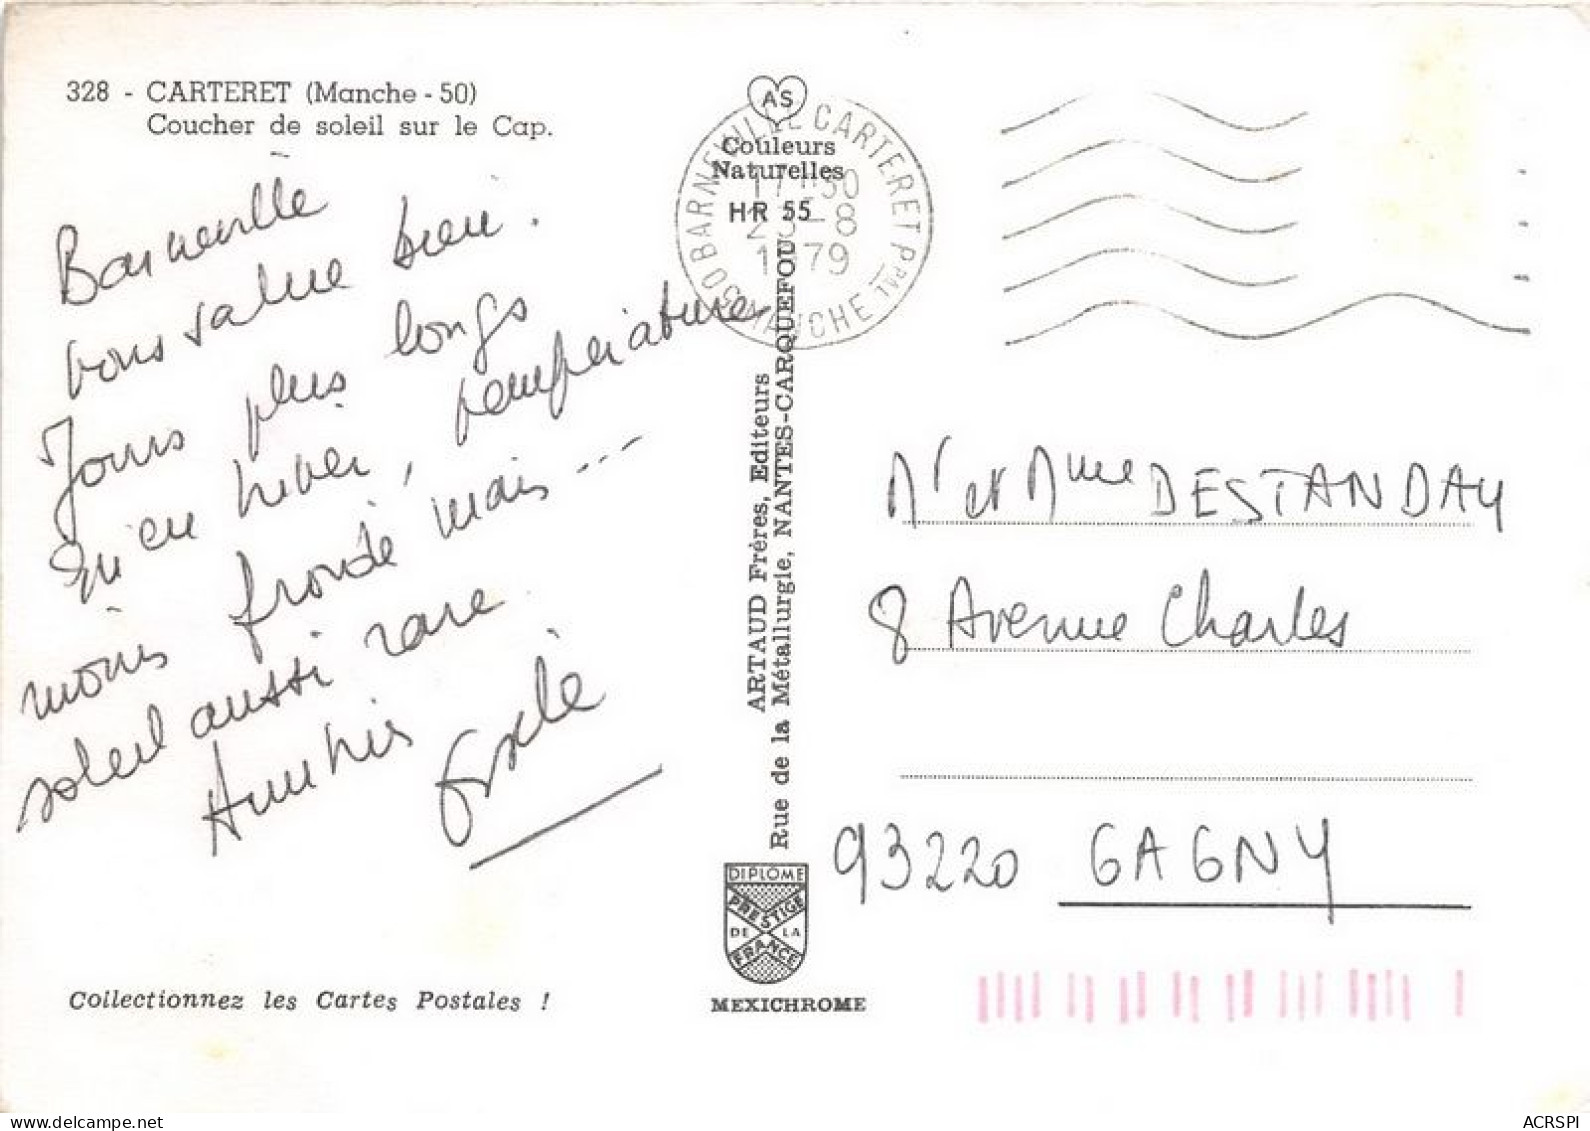 328 - CARTERET (Manche - 50)
Coucher de soleil sur le Cap.
Barneville
vous salue bien.
Jours plus longs
qu'en hiver, température
moins froide mais ...
soleil aussi rare.
Amitiés
AS
Couleurs
Naturelles
HR 55
50 BARNEVILLE CARTERET PPAL
MANCHE
17 H 30
-8
1979
ARTAUD Frères, Editeurs
Rue de la Métallurgie, NANTES-CARQUEFOU
DIPLOME
PRESTIGE
DE LA
FRANCE
MEXICHROME
Mr et Mme DESTANDAU
8 Avenue Charles
93220 GAGNY
Collectionnez les Cartes Postales !
ACRSPI